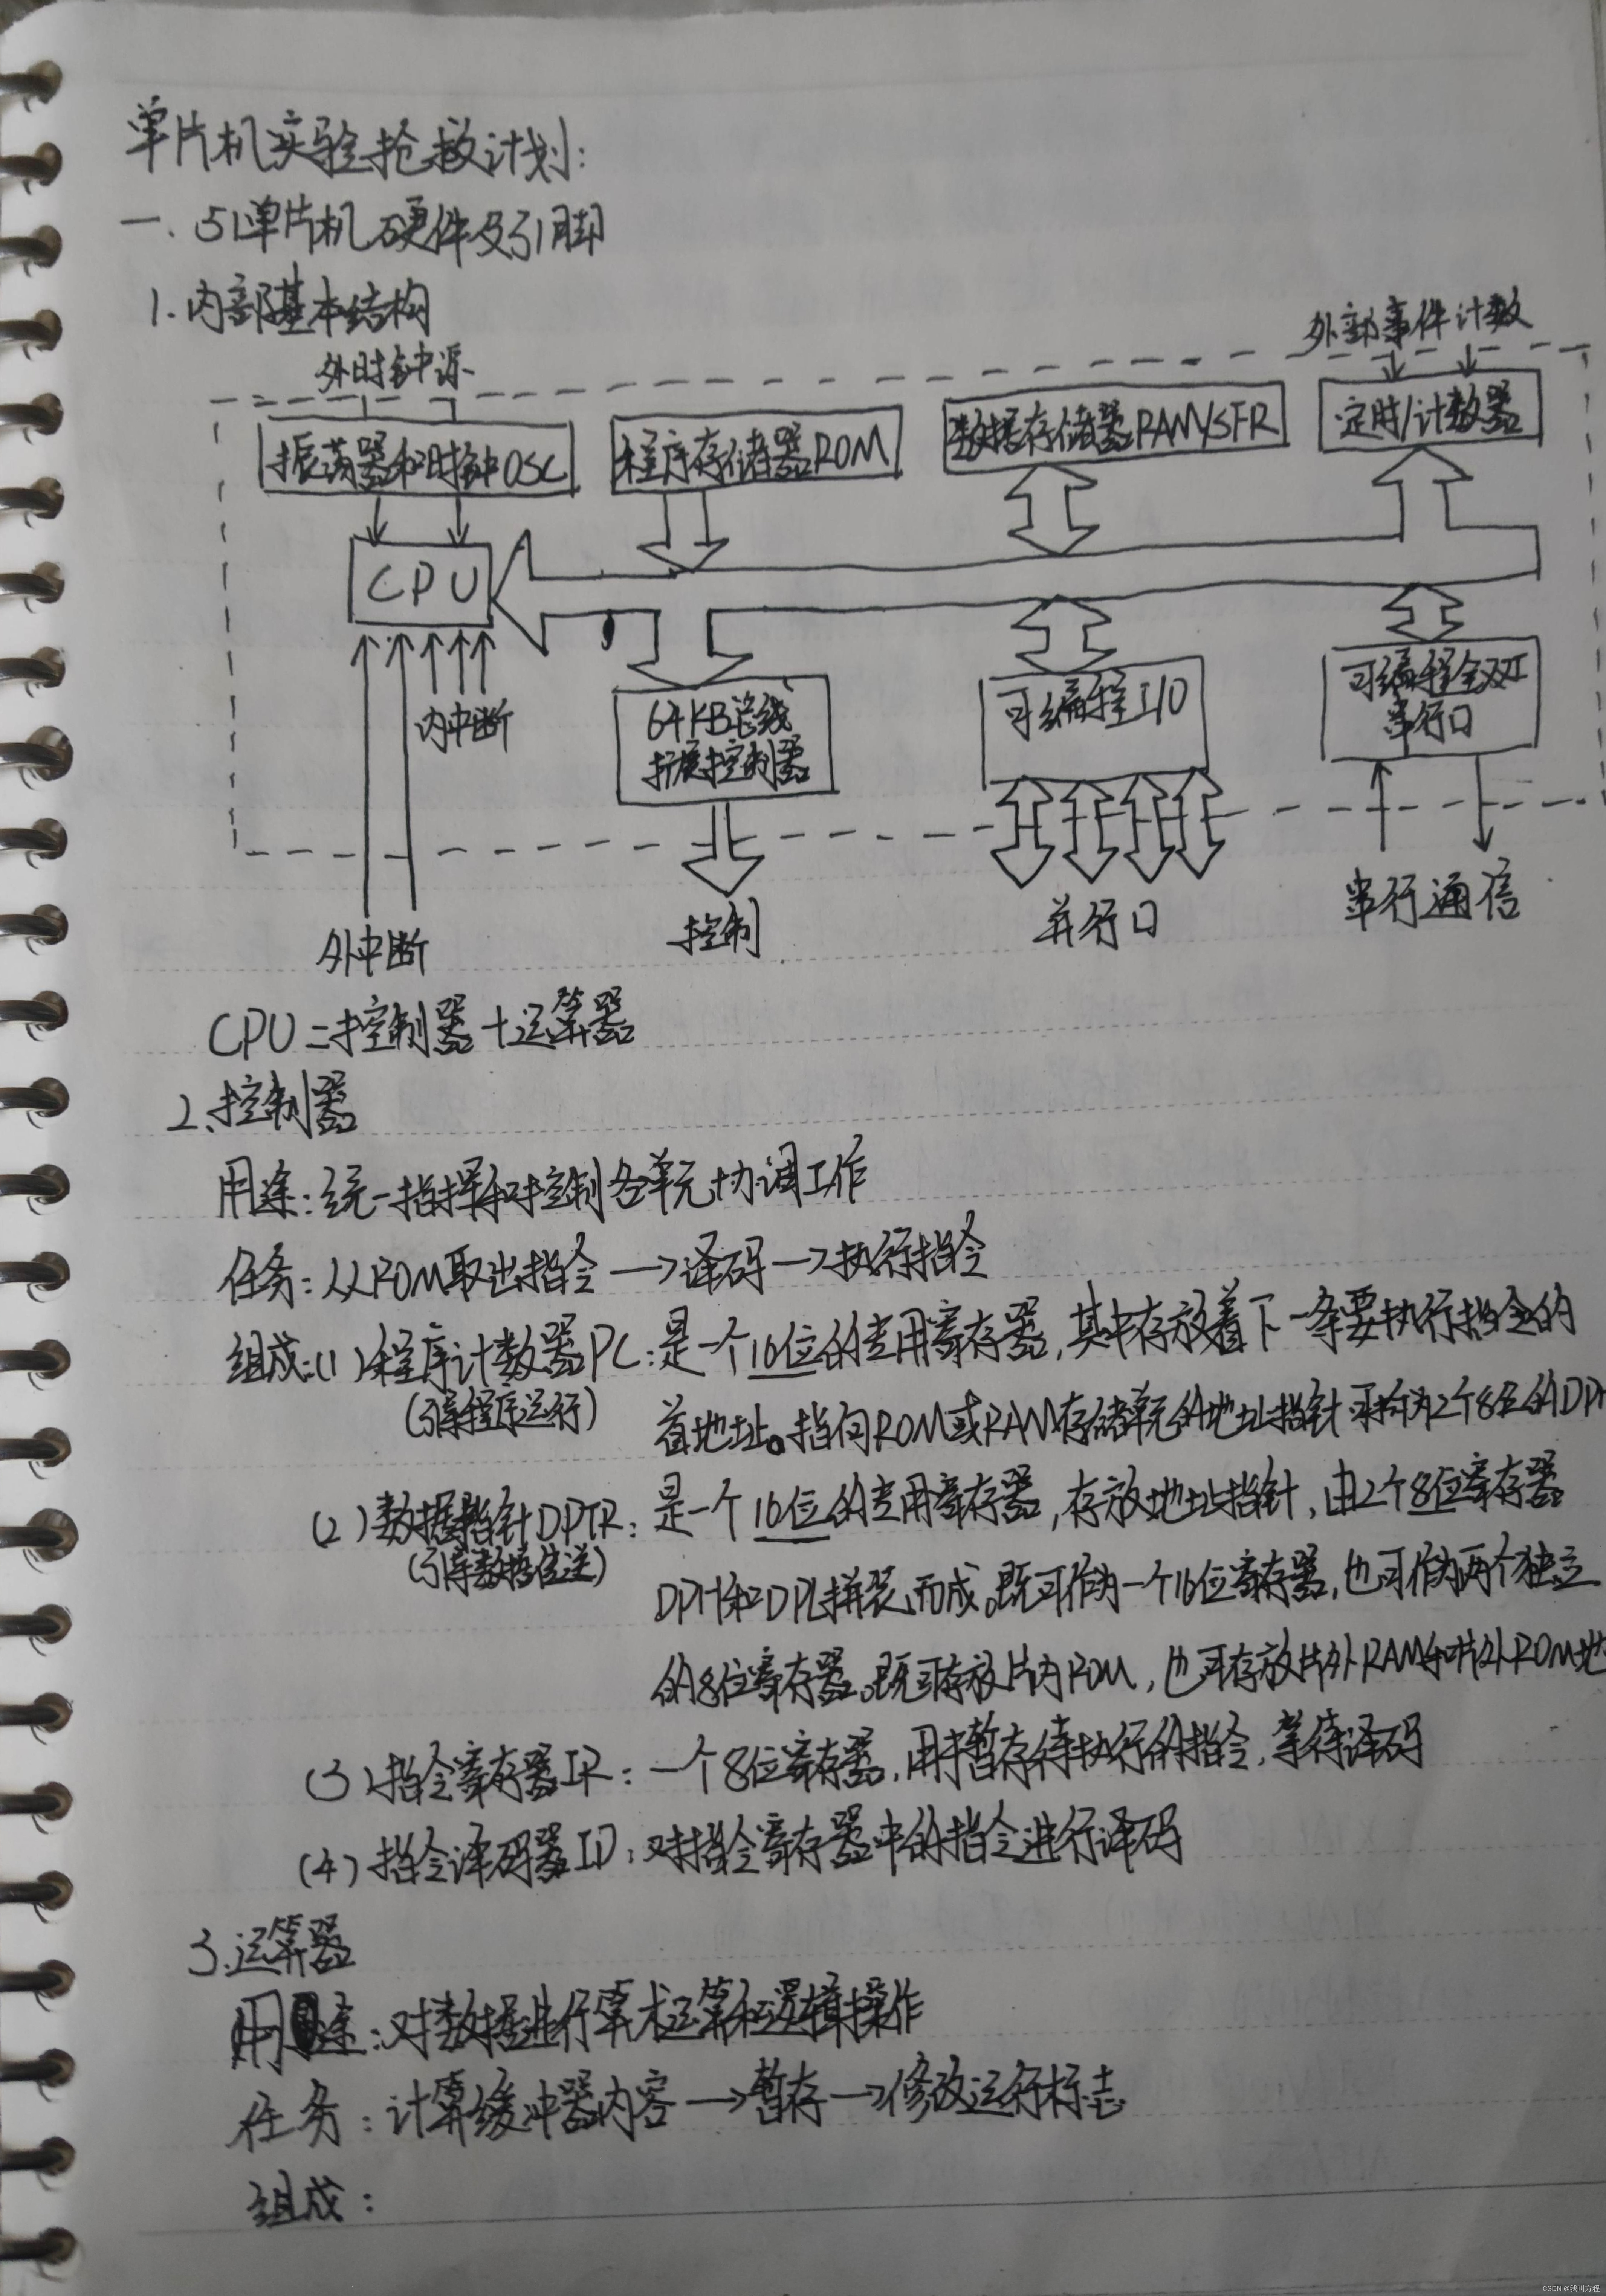 单片机实验抢救计划:
一. 51单片机硬件及引脚
1.内部基本结构
外部事件计数
外时钟源
振荡器和时钟OSC
程序存储器ROM
数据存储器RAM/SFR
定时/计数器
CPU
内中断
64KB总线
扩展控制器
可编程I/O
可编程全双工
串行口
外中断
控制
并行口
串行通信
CPU=控制器+运算器
2.控制器
用途:统一指挥和控制各单元协调工作
任务:从ROM取出指令→译码→执行指令
组成:(1)程序计数器PC:是一个16位的专用寄存器,其中存放着下一条要执行指令的
(引导程序运行)
首地址。指向ROM或RAM存储单元的地址指针 可拆为2个8位的DPH
(2)数据指针DPTR:是一个16位的专用寄存器,存放地址指针,由2个8位寄存器
(引导数据传送)
DPH和DPL拼装而成。既可作为一个16位寄存器,也可作为两个独立
的8位寄存器。既可存放片内ROM,也可存放片外RAM和片外ROM地
(3)指令寄存器IR:一个8位寄存器,用来暂存待执行的指令,等待译码
(4)指令译码器ID:对指令寄存器中的指令进行译码
3.运算器
用途:对数据进行算术运算和逻辑操作
任务:计算缓冲器内容→暂存→修改运行标志
组成:
CSDN @我叫方程